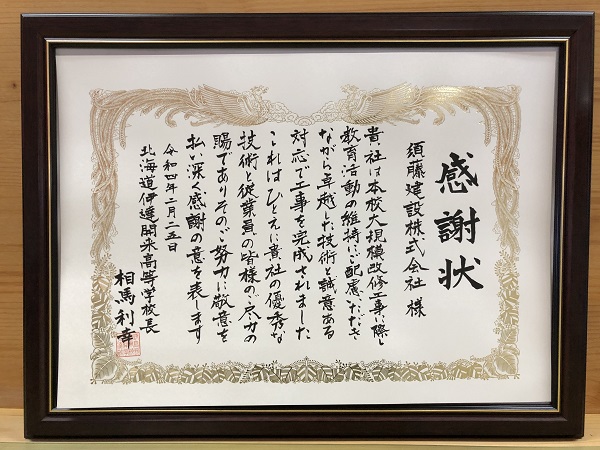 感謝状
須藤建設株式会社 様
貴社は本校大規模改修工事に際し
教育活動の維持にご配慮いただき
ながら卓越した技術と誠意ある
対応で工事を完成されました
これはひとえに貴社の優秀な
技術と従業員の皆様のご尽力の
賜でありそのご努力に敬意を
払い深く感謝の意を表します
令和四年二月二五日
北海道伊達開来高等学校長
相馬利幸